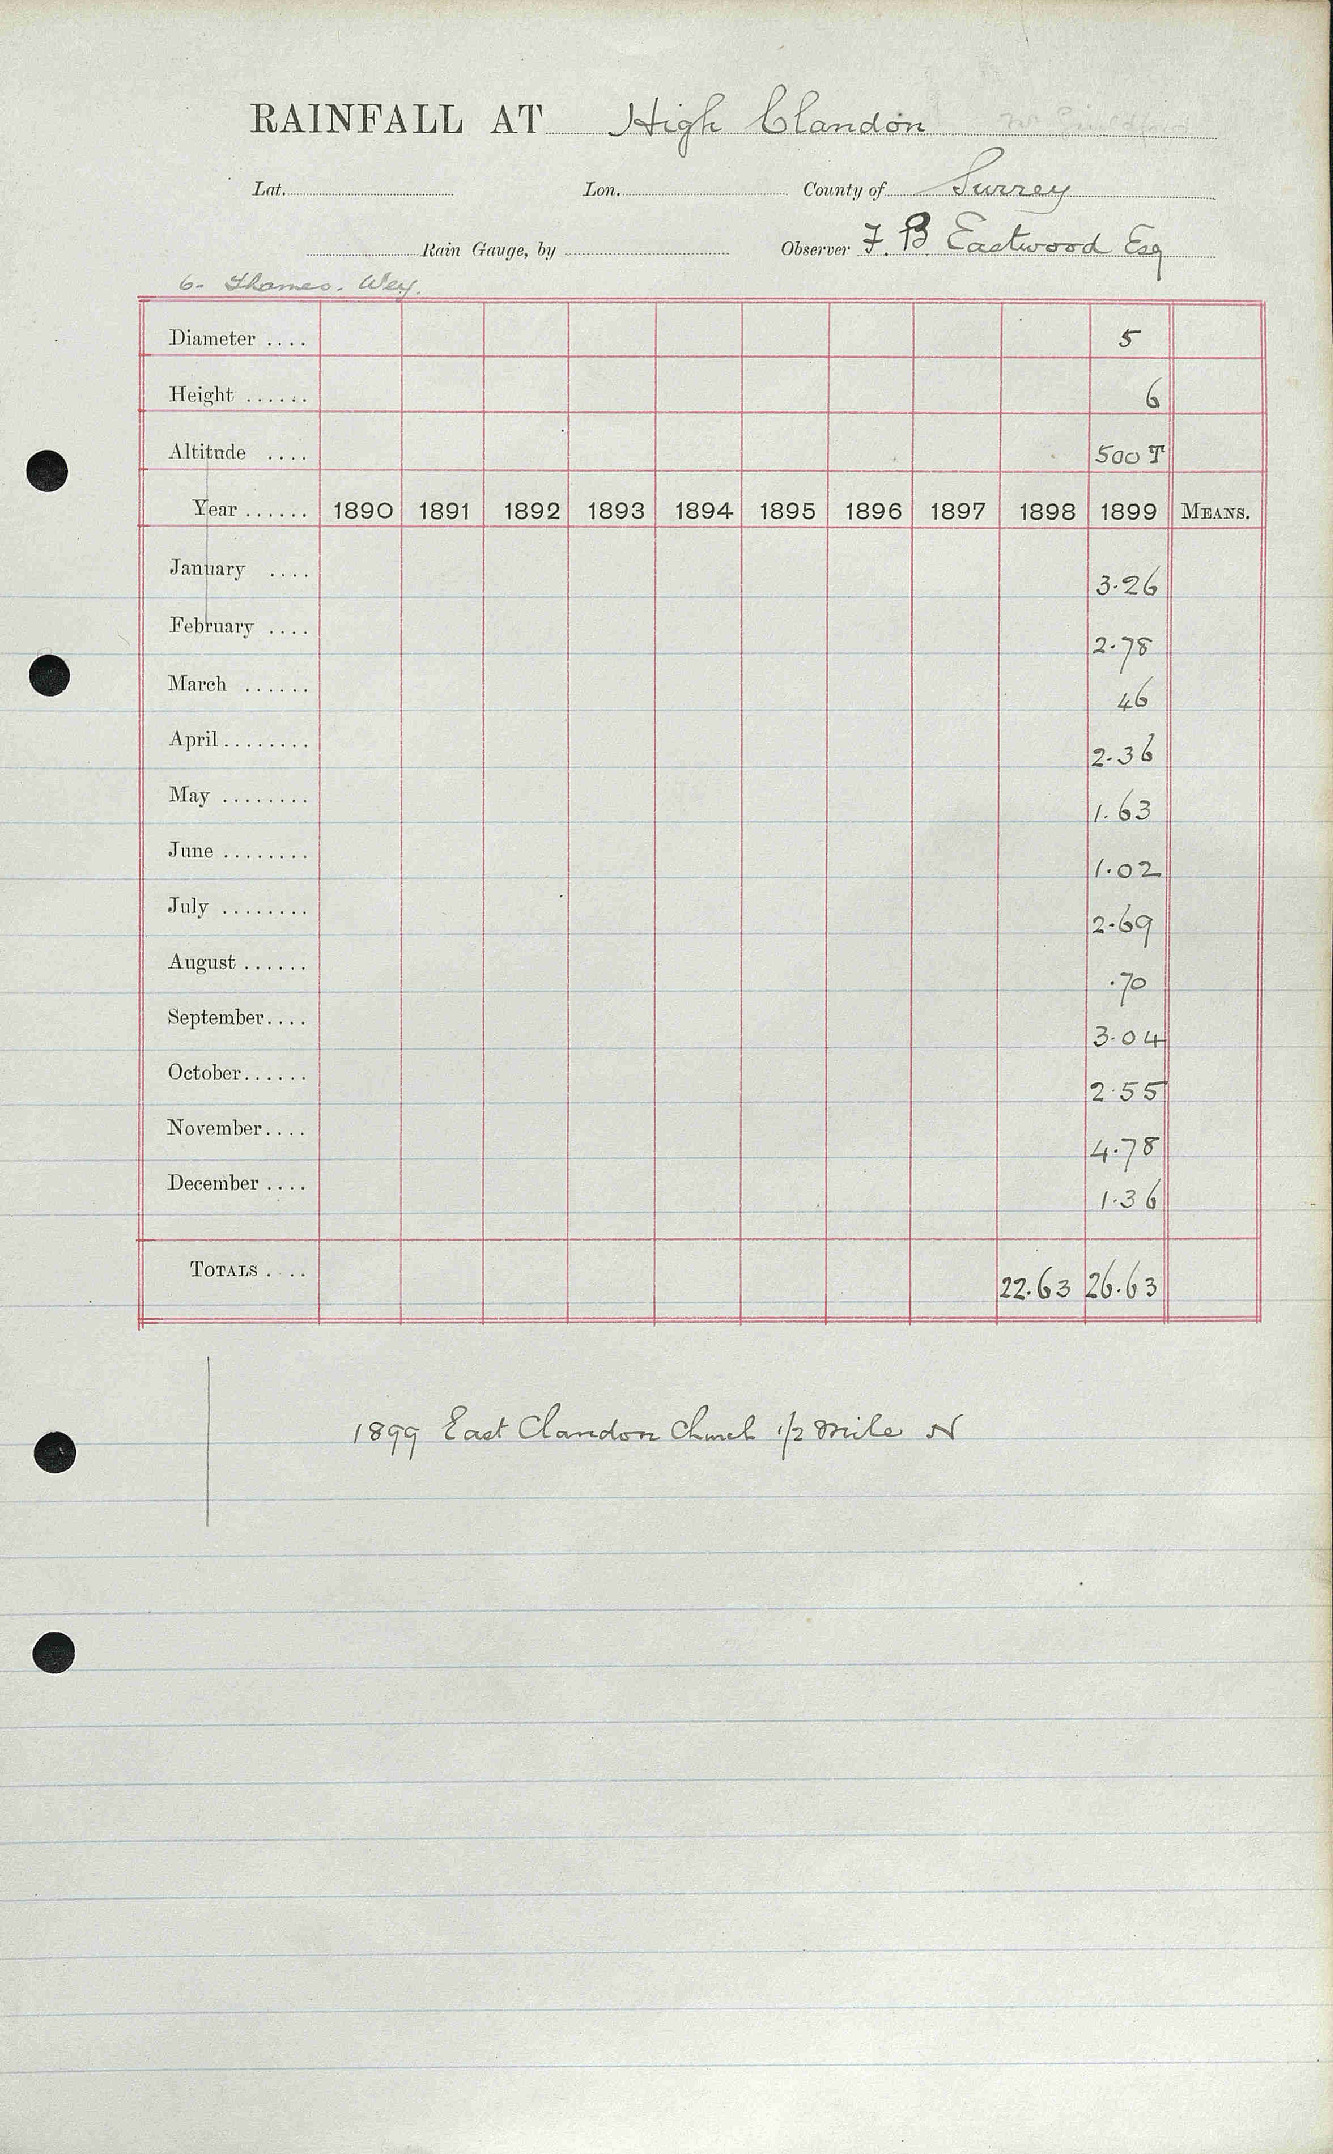 RAINFALL AT High Clandon Nr Guildford
Lat. Lon. County of Surrey
Rain Gauge, by Observer F. B. Eastwood Esq
6- Thames. Wey.
Diameter .... 5
Height ...... 6
Altitude .... 500 T
Year ...... 1890 1891 1892 1893 1894 1895 1896 1897 1898 1899 MEANS.
January .... 3.26
February .... 2.78
March ...... 46
April ........ 2.36
May ........ 1.63
June ........ 1.02
July ........ 2.69
August ...... .70
September .... 3.04
October ...... 2.55
November .... 4.78
December .... 1.36
TOTALS .... 22.63 26.63
1899 East Clandon Church 1/2 mile N